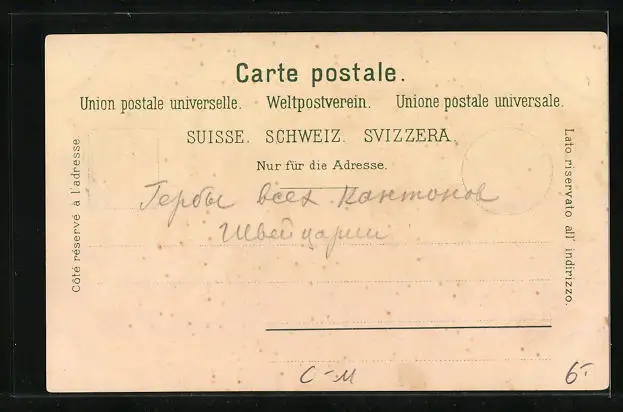 Carte postale.
Union postale universelle. Weltpostverein. Unione postale universale.
SUISSE. SCHWEIZ. SVIZZERA.
Nur für die Adresse.
Côté réservé à l'adresse
Lato riservato all' indirizzo.
Гербы всех кантонов
Швейцарии
С-М
6-